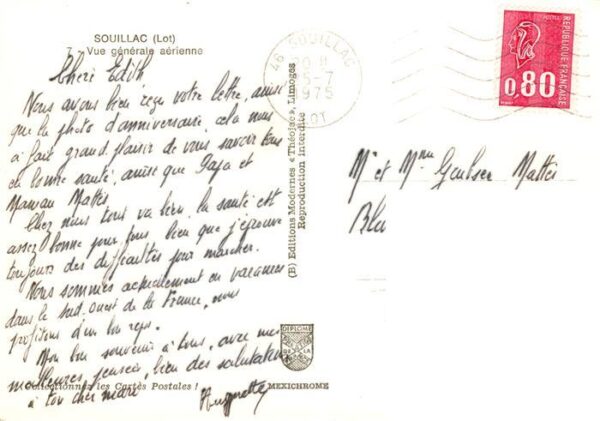 SOUILLAC (Lot)
Vue générale aérienne
Cheri Edith
Nous avons bien reçu votre lettre, ainsi
que la photo d'anniversaire, cela nous
a fait grand plaisir de vous savoir tous
en bonne santé, ainsi que Papa et
Maman Mattei
Chez nous tout va bien, la santé est
assez bonne pour tous, bien que j'éprouve
toujours des difficultés pour marcher.
Nous sommes actuellement en vacances
dans le sud-ouest de la France, nous
profitons d'un bon repos.
Mon bon souvenir à tous, avec mes
meilleures pensées, bien des salutations
à ton cher mari
Huguette
Collectionnez les Cartes Postales !
MEXICHROME
DIPLOME
DE LA
(B) Editions Modernes « Théojac », Limoges
Reproduction Interdite
46 SOUILLAC
5-7
1975
LOT
RÉPUBLIQUE FRANÇAISE
0,80
Mr et Mme Mattei